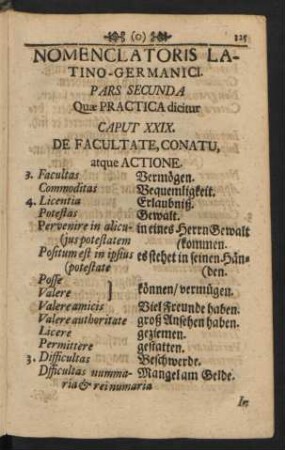 (0) 125
NOMENCLATORIS LA-
TINO-GERMANICI.
PARS SECUNDA
Quæ PRACTICA dicitur
CAPUT XXIX.
DE FACULTATE, CONATU,
atque ACTIONE.
3. Facultas Vermögen.
Commoditas Bequemligkeit.
4. Licentia Erlaubniß.
Potestas Gewalt.
Pervenire in alicu- in eines Herrn Gewalt
(jus potestatem (kommen.
Positum est in ipsius es stehet in seinen Hän-
(potestate (den.
Posse
Valere } können/ vermügen.
Valere amicis Viel Freunde haben.
Valere authoritate groß Ansehen haben.
Licere geziemen.
Permittere gestatten.
3. Difficultas Beschwerde.
Difficultas numma- Mangel am Gelde.
ria & rei numaria
In